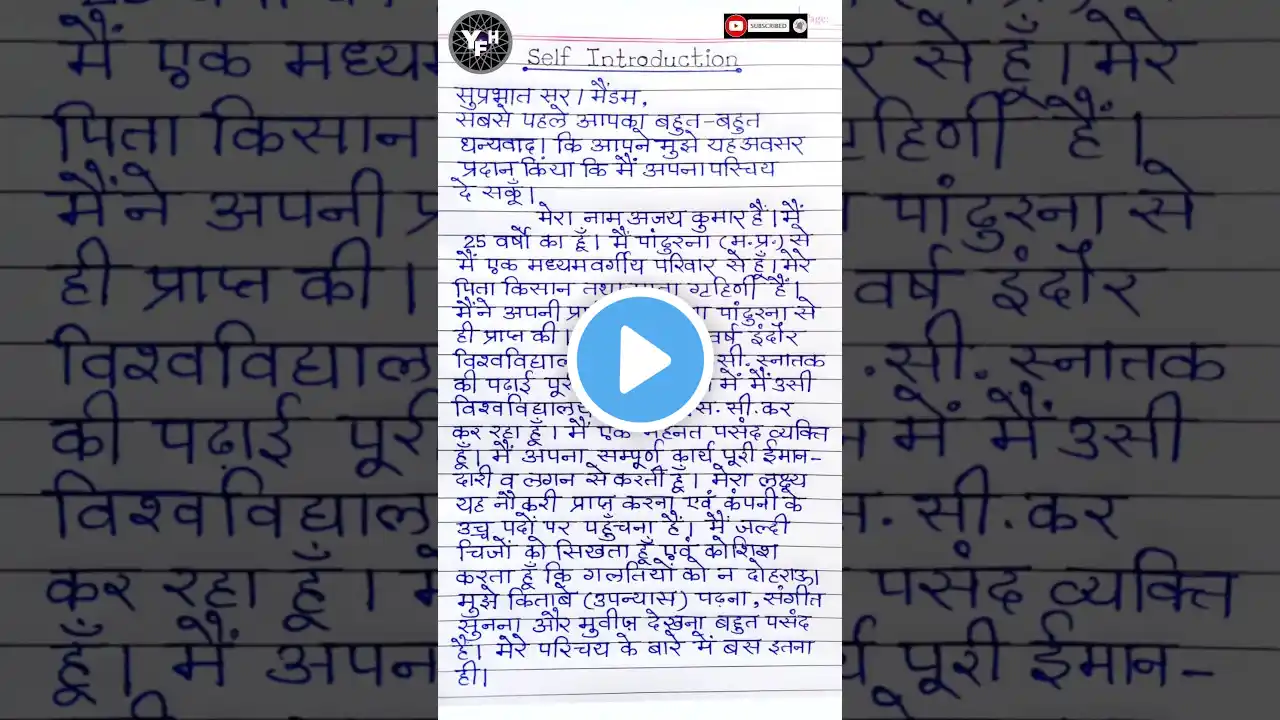 Self Introduction
सुप्रभात सर। मैडम,
सबसे पहले आपका बहुत-बहुत
धन्यवाद। कि आपने मुझे यह अवसर
प्रदान किया कि मैं अपना परिचय
दे सकूँ।
मेरा नाम अजय कुमार हैं। मैं
25 वर्षो का हूँ। मैं पांढुरना (म.प्र.) से
मैं एक मध्यमवर्गीय परिवार से हूँ। मेरे
पिता किसान तथा माता गृहिणी हैं।
मैंने अपनी पांढुरना से
ही प्राप्त की वर्ष इंदौर
सी. स्नातक
की पढ़ाई में मैं उसी
एस. सी. कर
कर रहा हूँ। मैं एक मेहनत पसंद व्यक्ति
हूँ। मैं अपना सम्पूर्ण कार्य पूरी ईमान-
दारी व लगन से करती हूँ। मेरा लक्ष्य
यह नौकरी प्राप्त करना एवं कंपनी के
उच्च पदों पर पहुँचना हैं। मैं जल्दी
चिजों को सिखता हूँ एवं कोशिश
करता हूँ कि गलतियों को न दोहराऊ।
मुझे किताबें (उपन्यास) पढ़ना, संगीत
सुनना और मुवीज देखना बहुत पसंद
है। मेरे परिचय के बारे में बस इतना
ही।
YFH
SUBSCRIBED